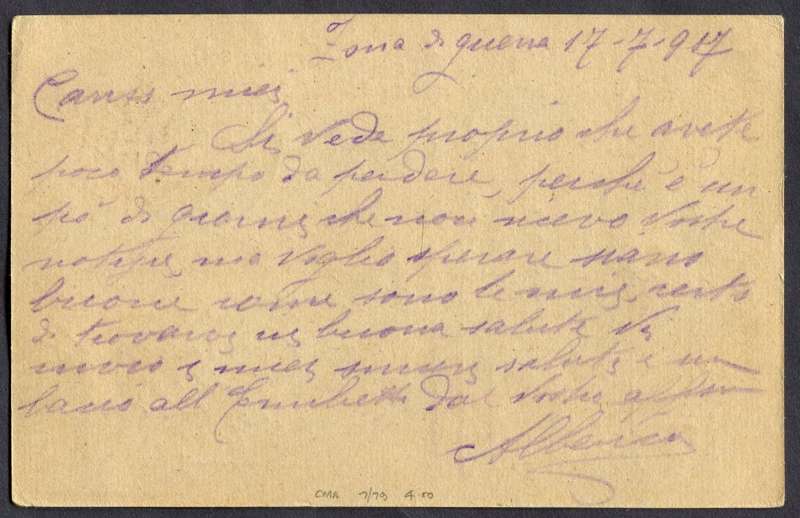 Zona di guerra 17-7-917
Cariss miei
Si vede proprio che avete
poco tempo da perdere, perché è un
pò di giorni che non ricevo vostre
notizie, ma voglio sperare siano
buone come sono le mie, certo
di trovarvi in buona salute vi
invio i miei saluti e un
bacio all' dal vostro
Alberico
CMR 7/79 4.50